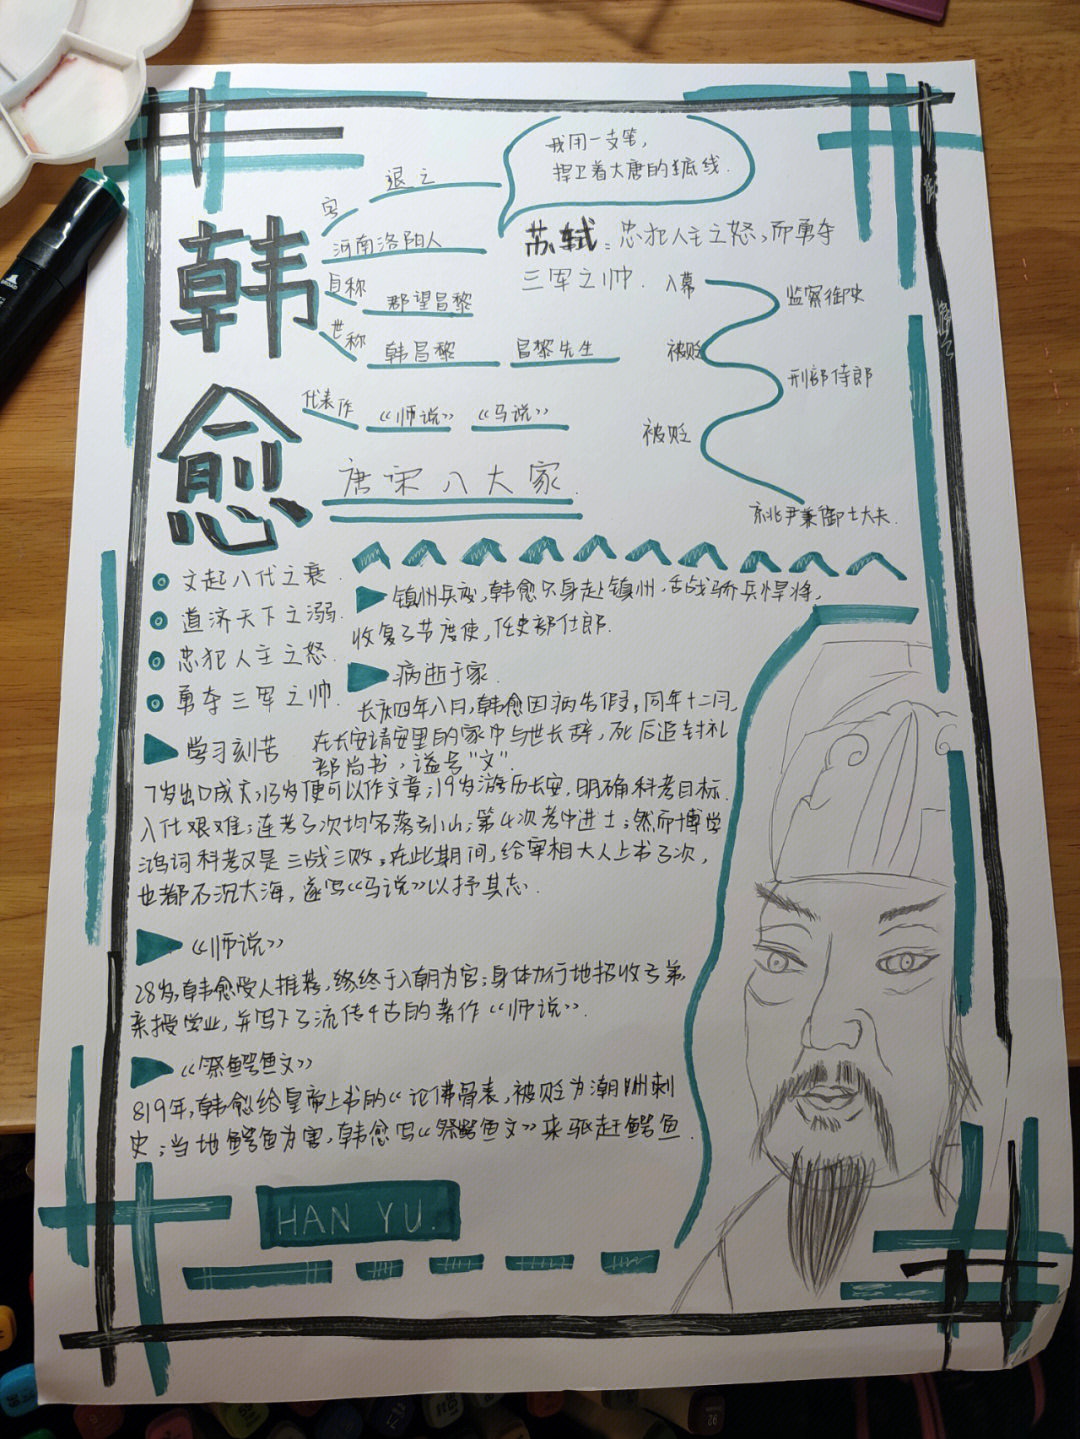 韩愈
字 退之
我用一支笔，
捍卫着大唐的底线.
河南洛阳人
自称 郡望昌黎
世称 韩昌黎 昌黎先生
代表作 《师说》 《马说》
唐宋八大家.
苏轼：忠犯人主之怒，而勇夺
三军之帅.
入幕
监察御史
被贬
刑部侍郎
被贬
京兆尹兼御士大夫.
文起八代之衰.
道济天下之溺.
忠犯人主之怒.
勇夺三军之帅.
镇州兵变，韩愈只身赴镇州，舌战骄兵悍将，
收复了节度使，任史部仕郎.
病逝于家.
长庆四年八月，韩愈因病告假，同年十二月，
在长安靖安里的家中与世长辞，死后追封礼
部尚书，谥号“文”.
学习刻苦
7岁出口成文；13岁便可以作文章；19岁游历长安，明确科考目标.
入仕艰难；连考3次均名落孙山；第4次考中进士；然而博学
鸿词科考又是三战三败。在此期间，给宰相大人上书3次，
也都石沉大海，遂写《马说》以抒其志.
《师说》
28岁，韩愈受人推荐，终于入朝为官；身体力行地招收弟
亲授学业，并写下了流传千古的著作《师说》.
《祭鳄鱼文》
819年，韩愈给皇帝上书的《论佛骨表，被贬为潮洲刺
史；当地鳄鱼为害，韩愈写《祭鳄鱼文》来驱赶鳄鱼.
HAN YU.